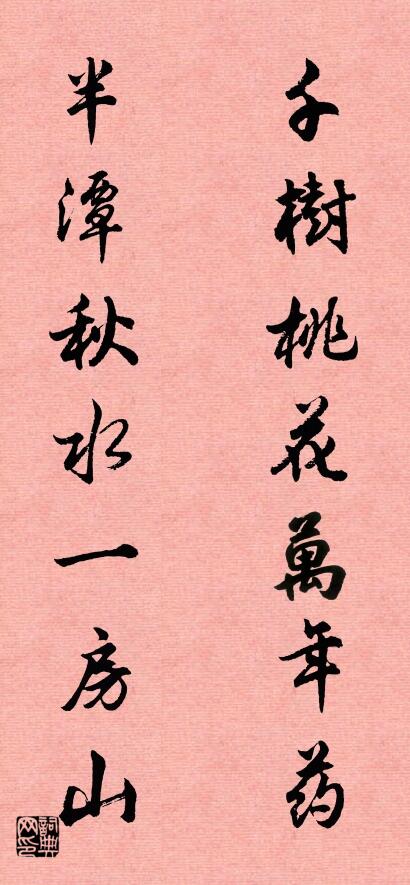 千樹桃花萬年药
半潭秋水一房山
詞典网印